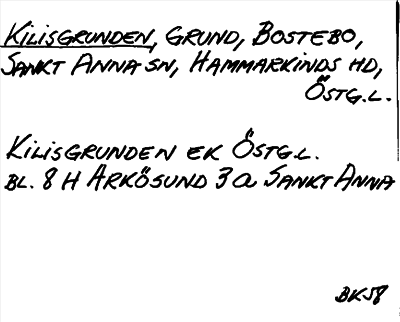 KILISGRUNDEN, GRUND, BOSTEBO,
SANKT ANNA SN, HAMMARKINDS HD,
ÖSTG.L.
KILISGRUNDEN EK ÖSTG.L.
BL. 8 H ARKÖSUND 3 a SANKT ANNA
BK58